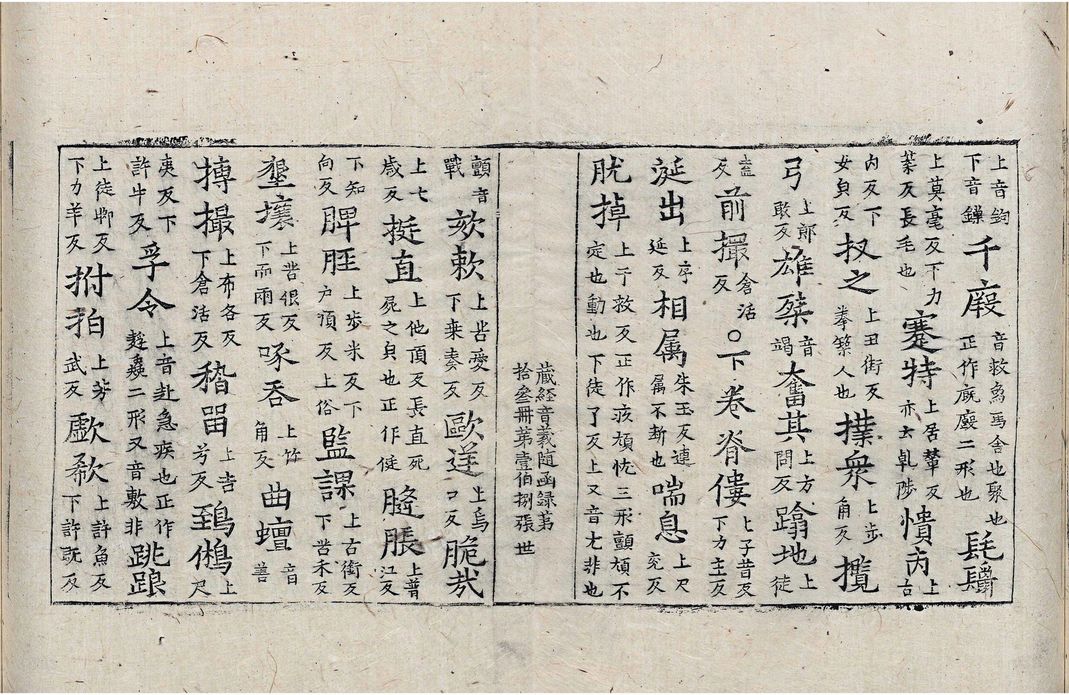 上音鈞下音鏁千廄音救鳥馬舍也聚也正作廐廄二形也毷氉
上莫毫反下力葉反長毛也蹇特上居輦反亦云乹陟憒丙上古
內反下女皃反扠之上丑街反拳築人也撲衆上步角反攬
弓上郎敢反雄桀音竭奮其上方問反蹹地上徒
盍反前撮倉活反○下卷脊僂上子昔反下力主反
涎出上序延反相属朱玉反連属不断也喘息上尺兖反
肬掉上于救反正作疣頄忱三形顫頄不定也動也下徒了反上又音尤非也
藏經音義隨函録第拾叁冊第壹伯捌張 世
顫音戰欬欶上苦愛反下桒奏反歐逆上烏口反脆哉
上七歳反挺直上他頂反長直死屍之皃也正作侹胮脹上普江反
下知向反脾脛上步米反下户頂反上俗監課上古銜反下苦禾反
墾壤上苦很反下而兩反啄吞上竹角反曲蟺音善
摶撮上布各反下倉活反稽留上吉兮反鵄鵂上尺
夷反下許牛反孚令上音赴急疾也正作趍䢐二形又音敷非跳踉
上徒邺反下力羊反拊拍上芳武反歔欷上許魚反下許旣反